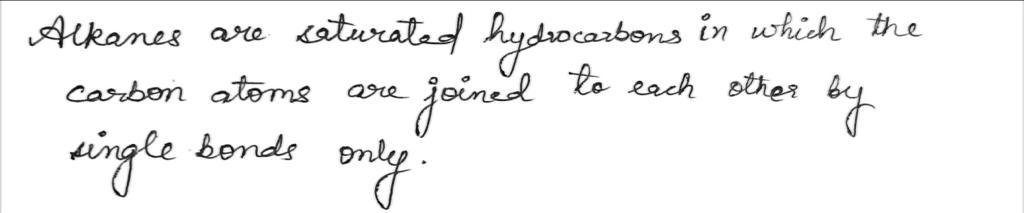 Alkanes are saturated hydrocarbons in which the
carbon atoms are joined to each other by
single bonds only.